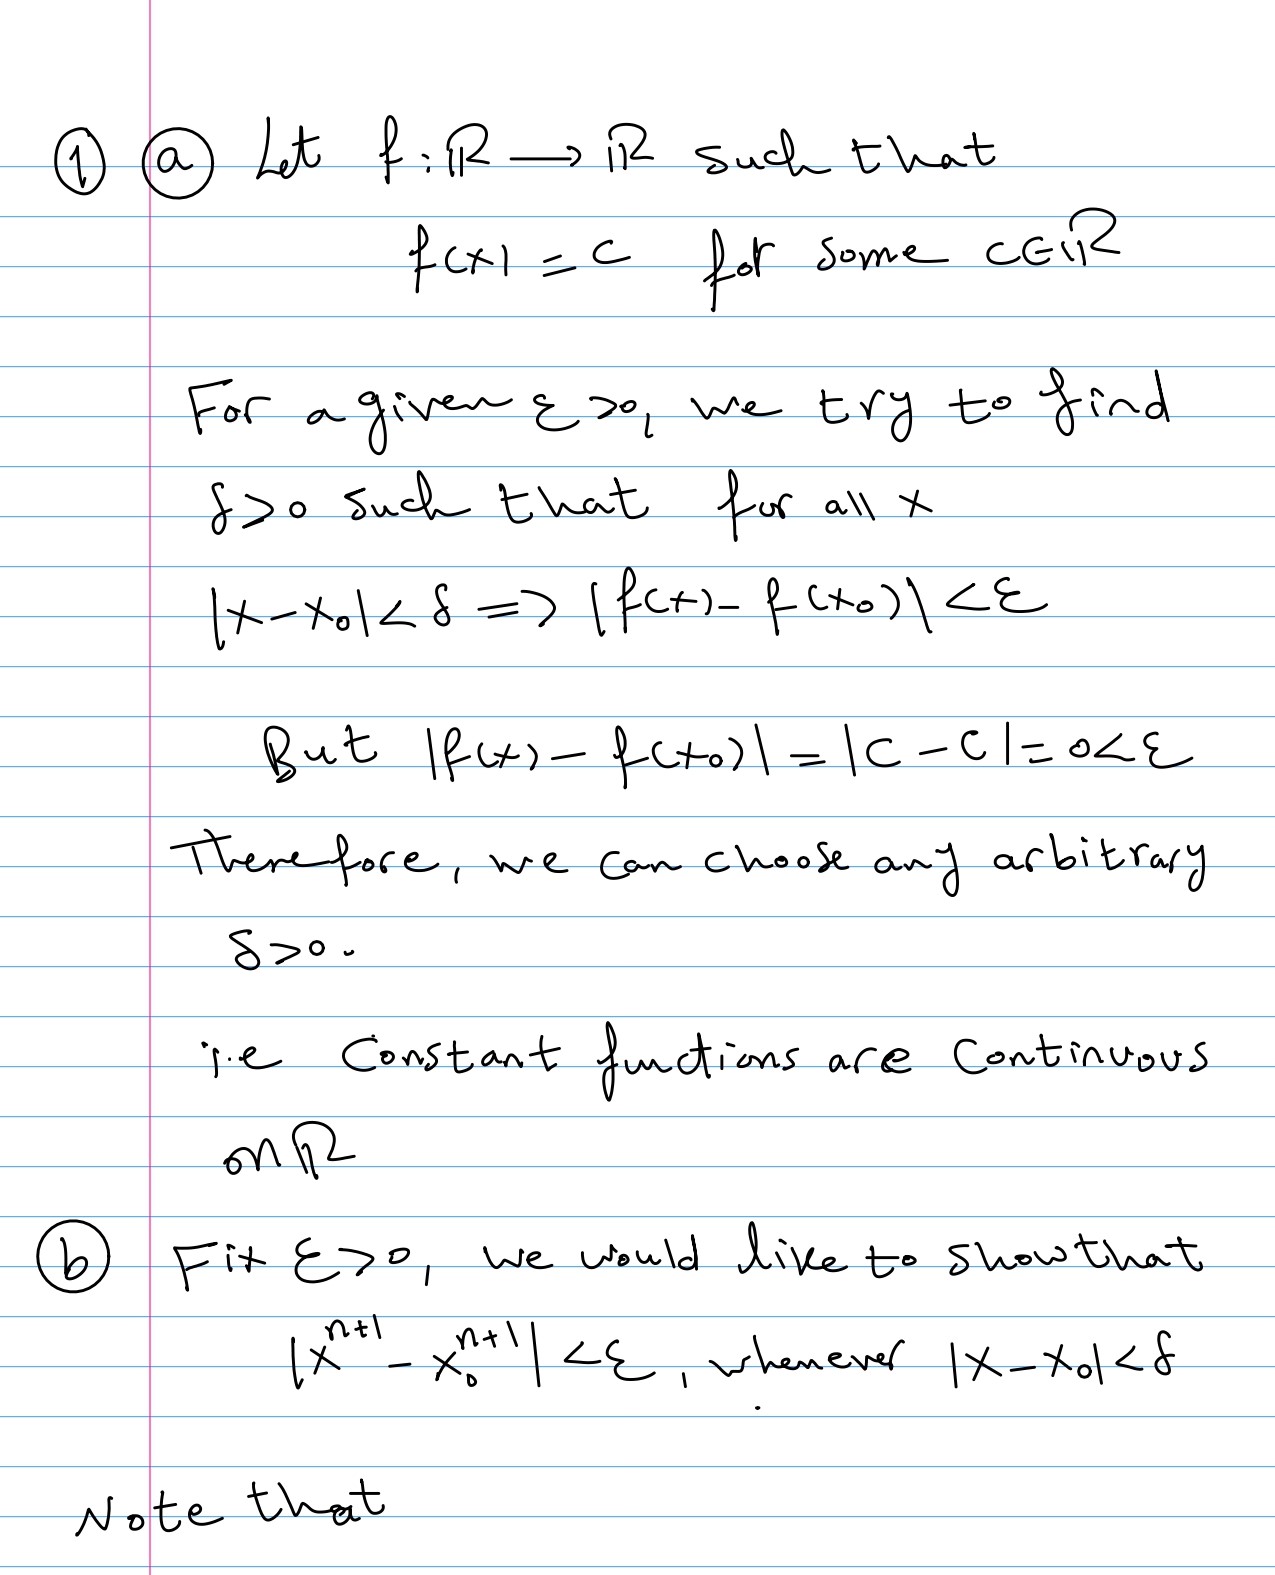 ① ⓐ Let f : ℝ → ℝ such that
f(x) = c for some c ∈ ℝ
For a given ε > 0, we try to find
δ > 0 such that for all x
|x - x₀| < δ => |f(x) - f(x₀)| < ε
But |f(x) - f(x₀)| = |c - c| = 0 < ε
Therefore, we can choose any arbitrary
δ > 0.
i.e Constant functions are Continuous
on ℝ
ⓑ Fix ε > 0, we would like to show that
|xⁿ⁺¹ - x₀ⁿ⁺¹| < ε, whenever |x - x₀| < δ
Note that